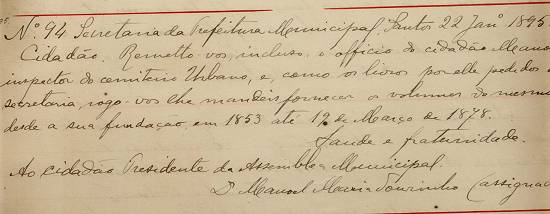 Nº 94 Secretaria da Prefeitura Municipal, Santos 22 Janº 1895
Cidadão. Remetto-vos, incluso, o officio do cidadão Manoel
inspector do cemiterio Urbano, e, como os livros por elle pedidos
secretaria, rogo-vos lhe mandeis fornecer os volumes do mesmo
desde a sua fundação, em 1853 até 12 de Março de 1878.
Saude e fraternidade.
Ao cidadão Presidente da Assemblea Municipal.
Dr Manoel Maria Tourinho (assignad